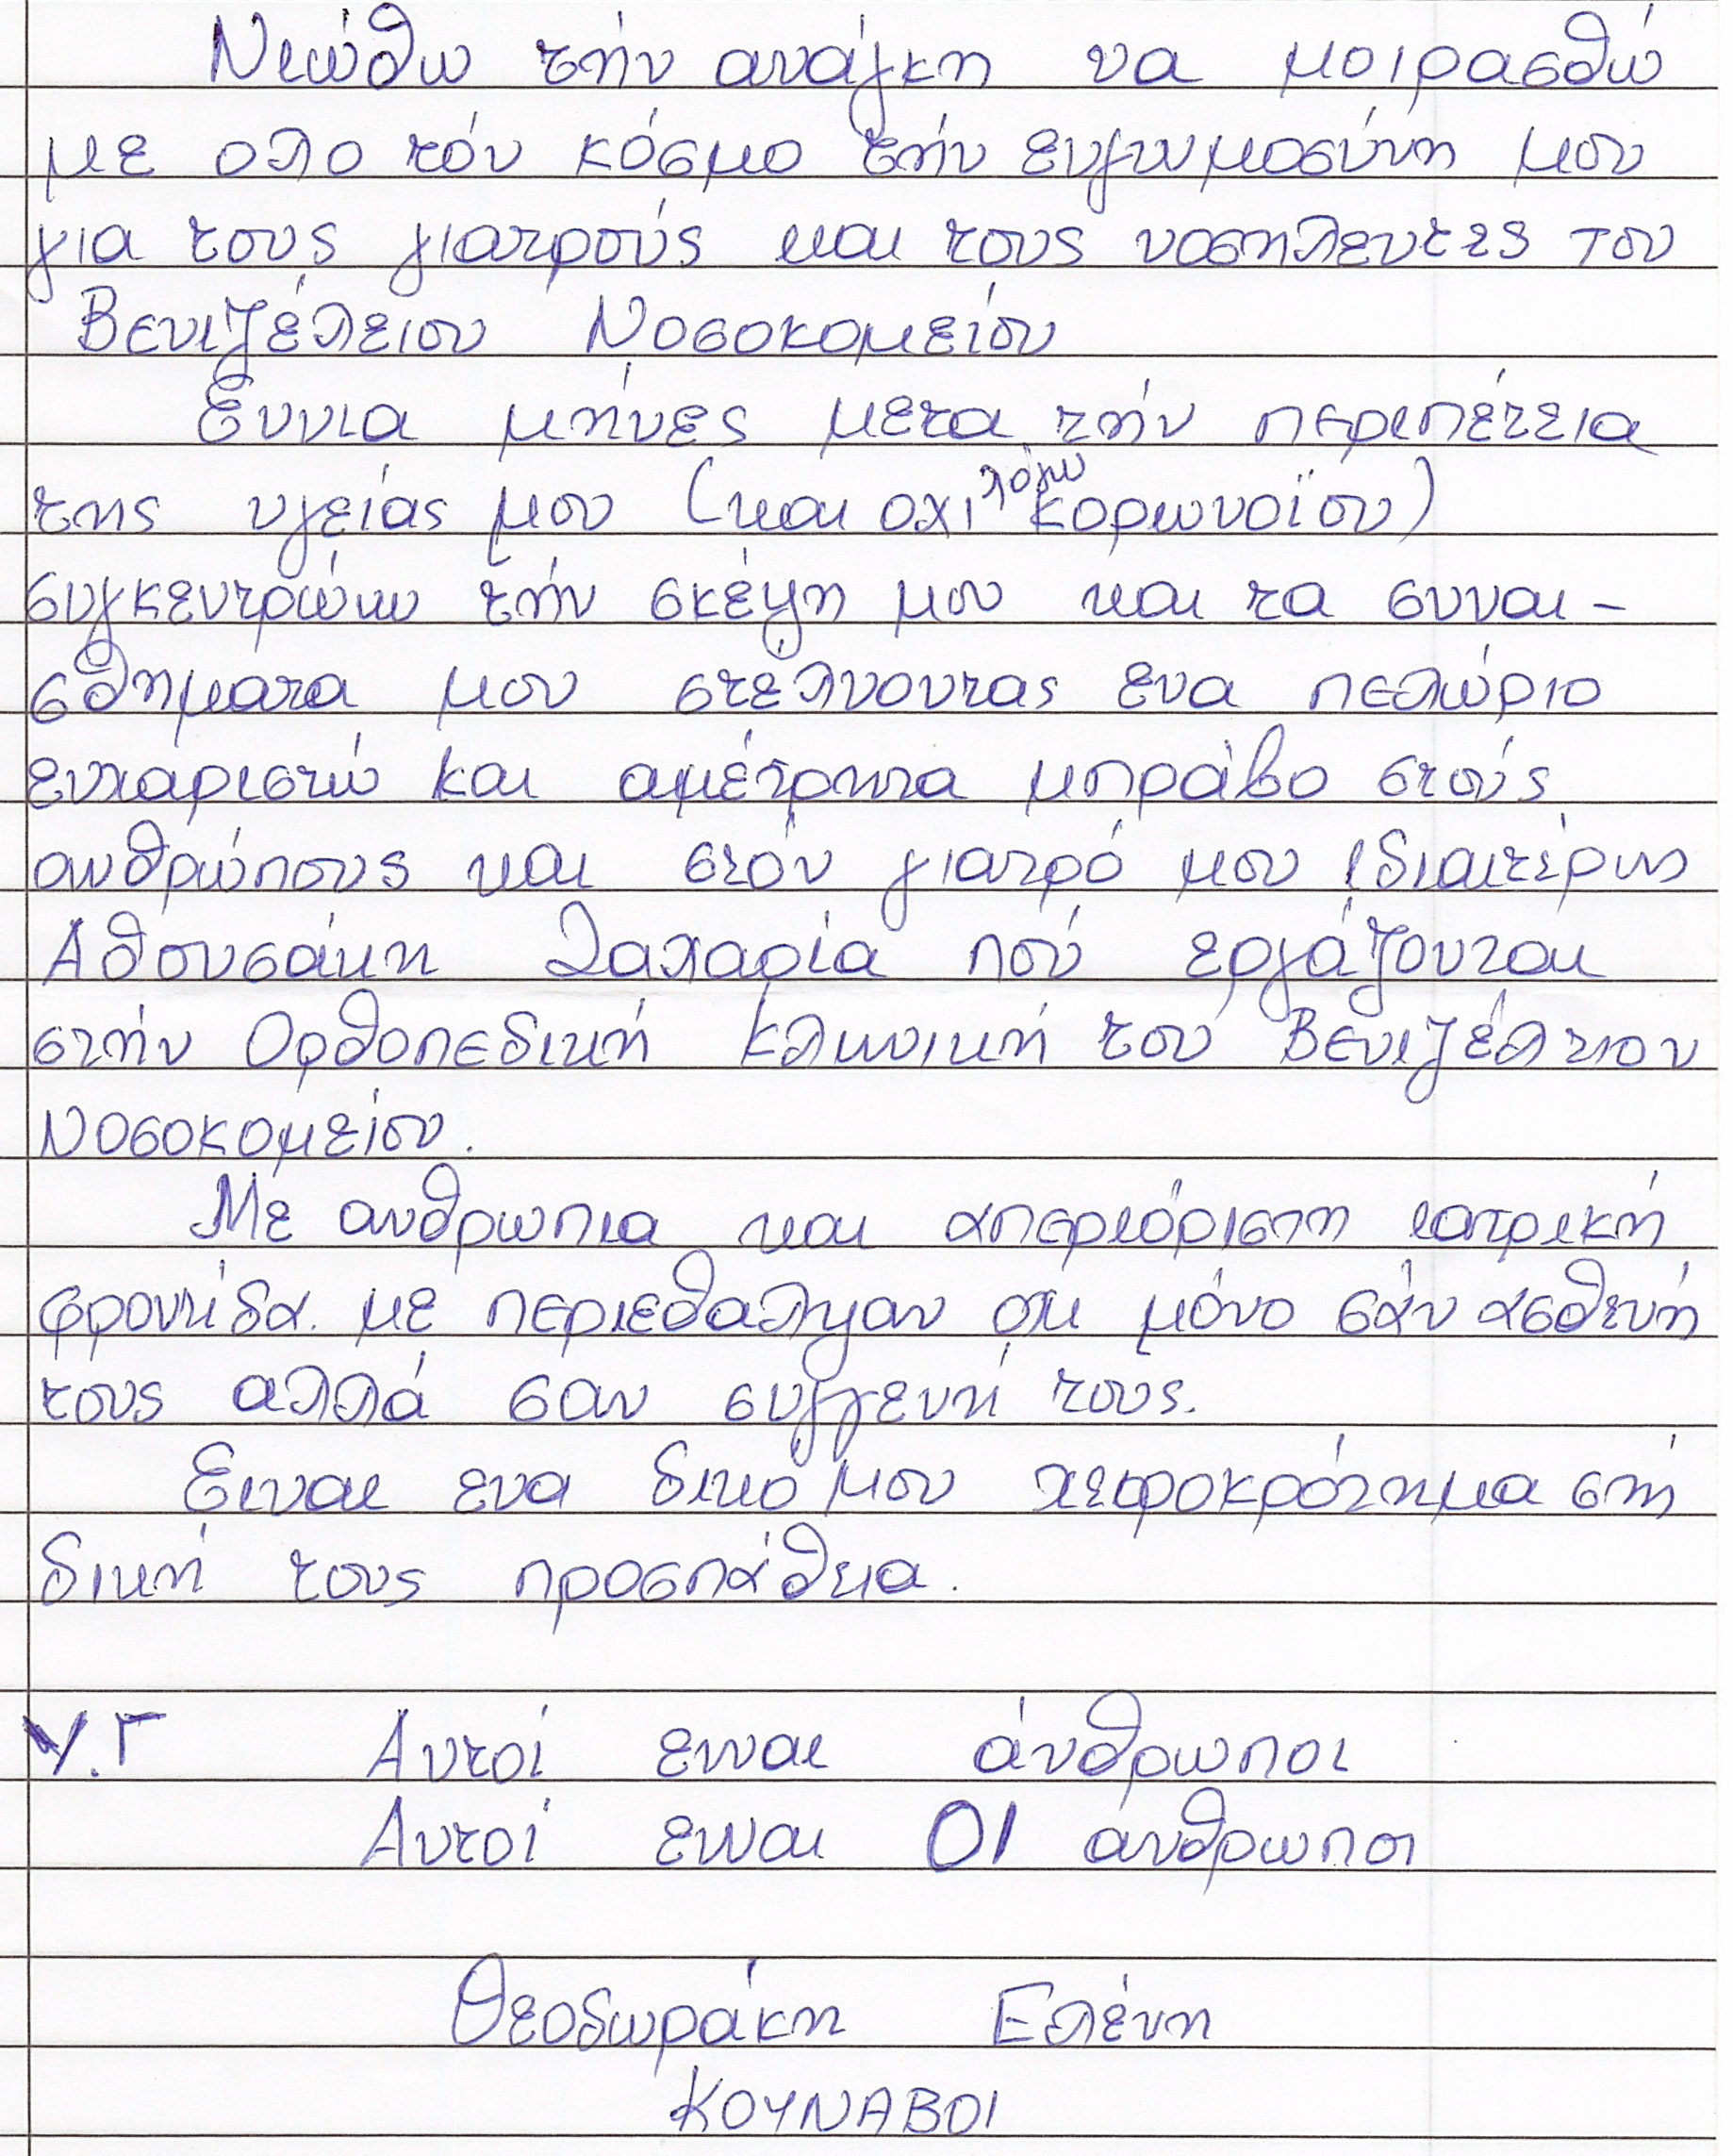 Νιώθω τήν ανάγκη να μοιρασθώ
με ολο τόν κόσμο τήν ευγνωμοσύνη μου
για τους γιατρούς και τους νοσηλευτες του
Βενιζέλειου Νοσοκομείου
Εννια μήνες μετα τήν περιπέτεια
της υγείας μου (και οχι λόγω κορωνοϊου)
συγκεντρώνω τήν σκέψη μου και τα συναι-
σθηματα μου στέλνοντας ενα πελώριο
ευχαριστώ και αμέτρητα μπράβο στούς
ανθρώπους και στόν γιατρό μου ιδιαιτέρως
Αθουσάκη Ζαχαρία πού εργάζονται
στήν Ορθοπεδική κλινική του Βενιζέλειου
Νοσοκομείου.
Με ανθρωπια και απεριόριστη ιατρική
φροντίδα. με περιεθαλψαν οχι μόνο σάν ασθενή
τους αλλά σαν συγγενή τους.
Ειναι ενα δικό μου χειροκρότημα στή
δική τους προσπάθεια.
Υ.Γ Αυτοί ειναι άνθρωποι
Αυτοί ειναι ΟΙ ανθρωποι
Θεοδωράκη Ελένη
ΚΟΥΝΑΒΟΙ